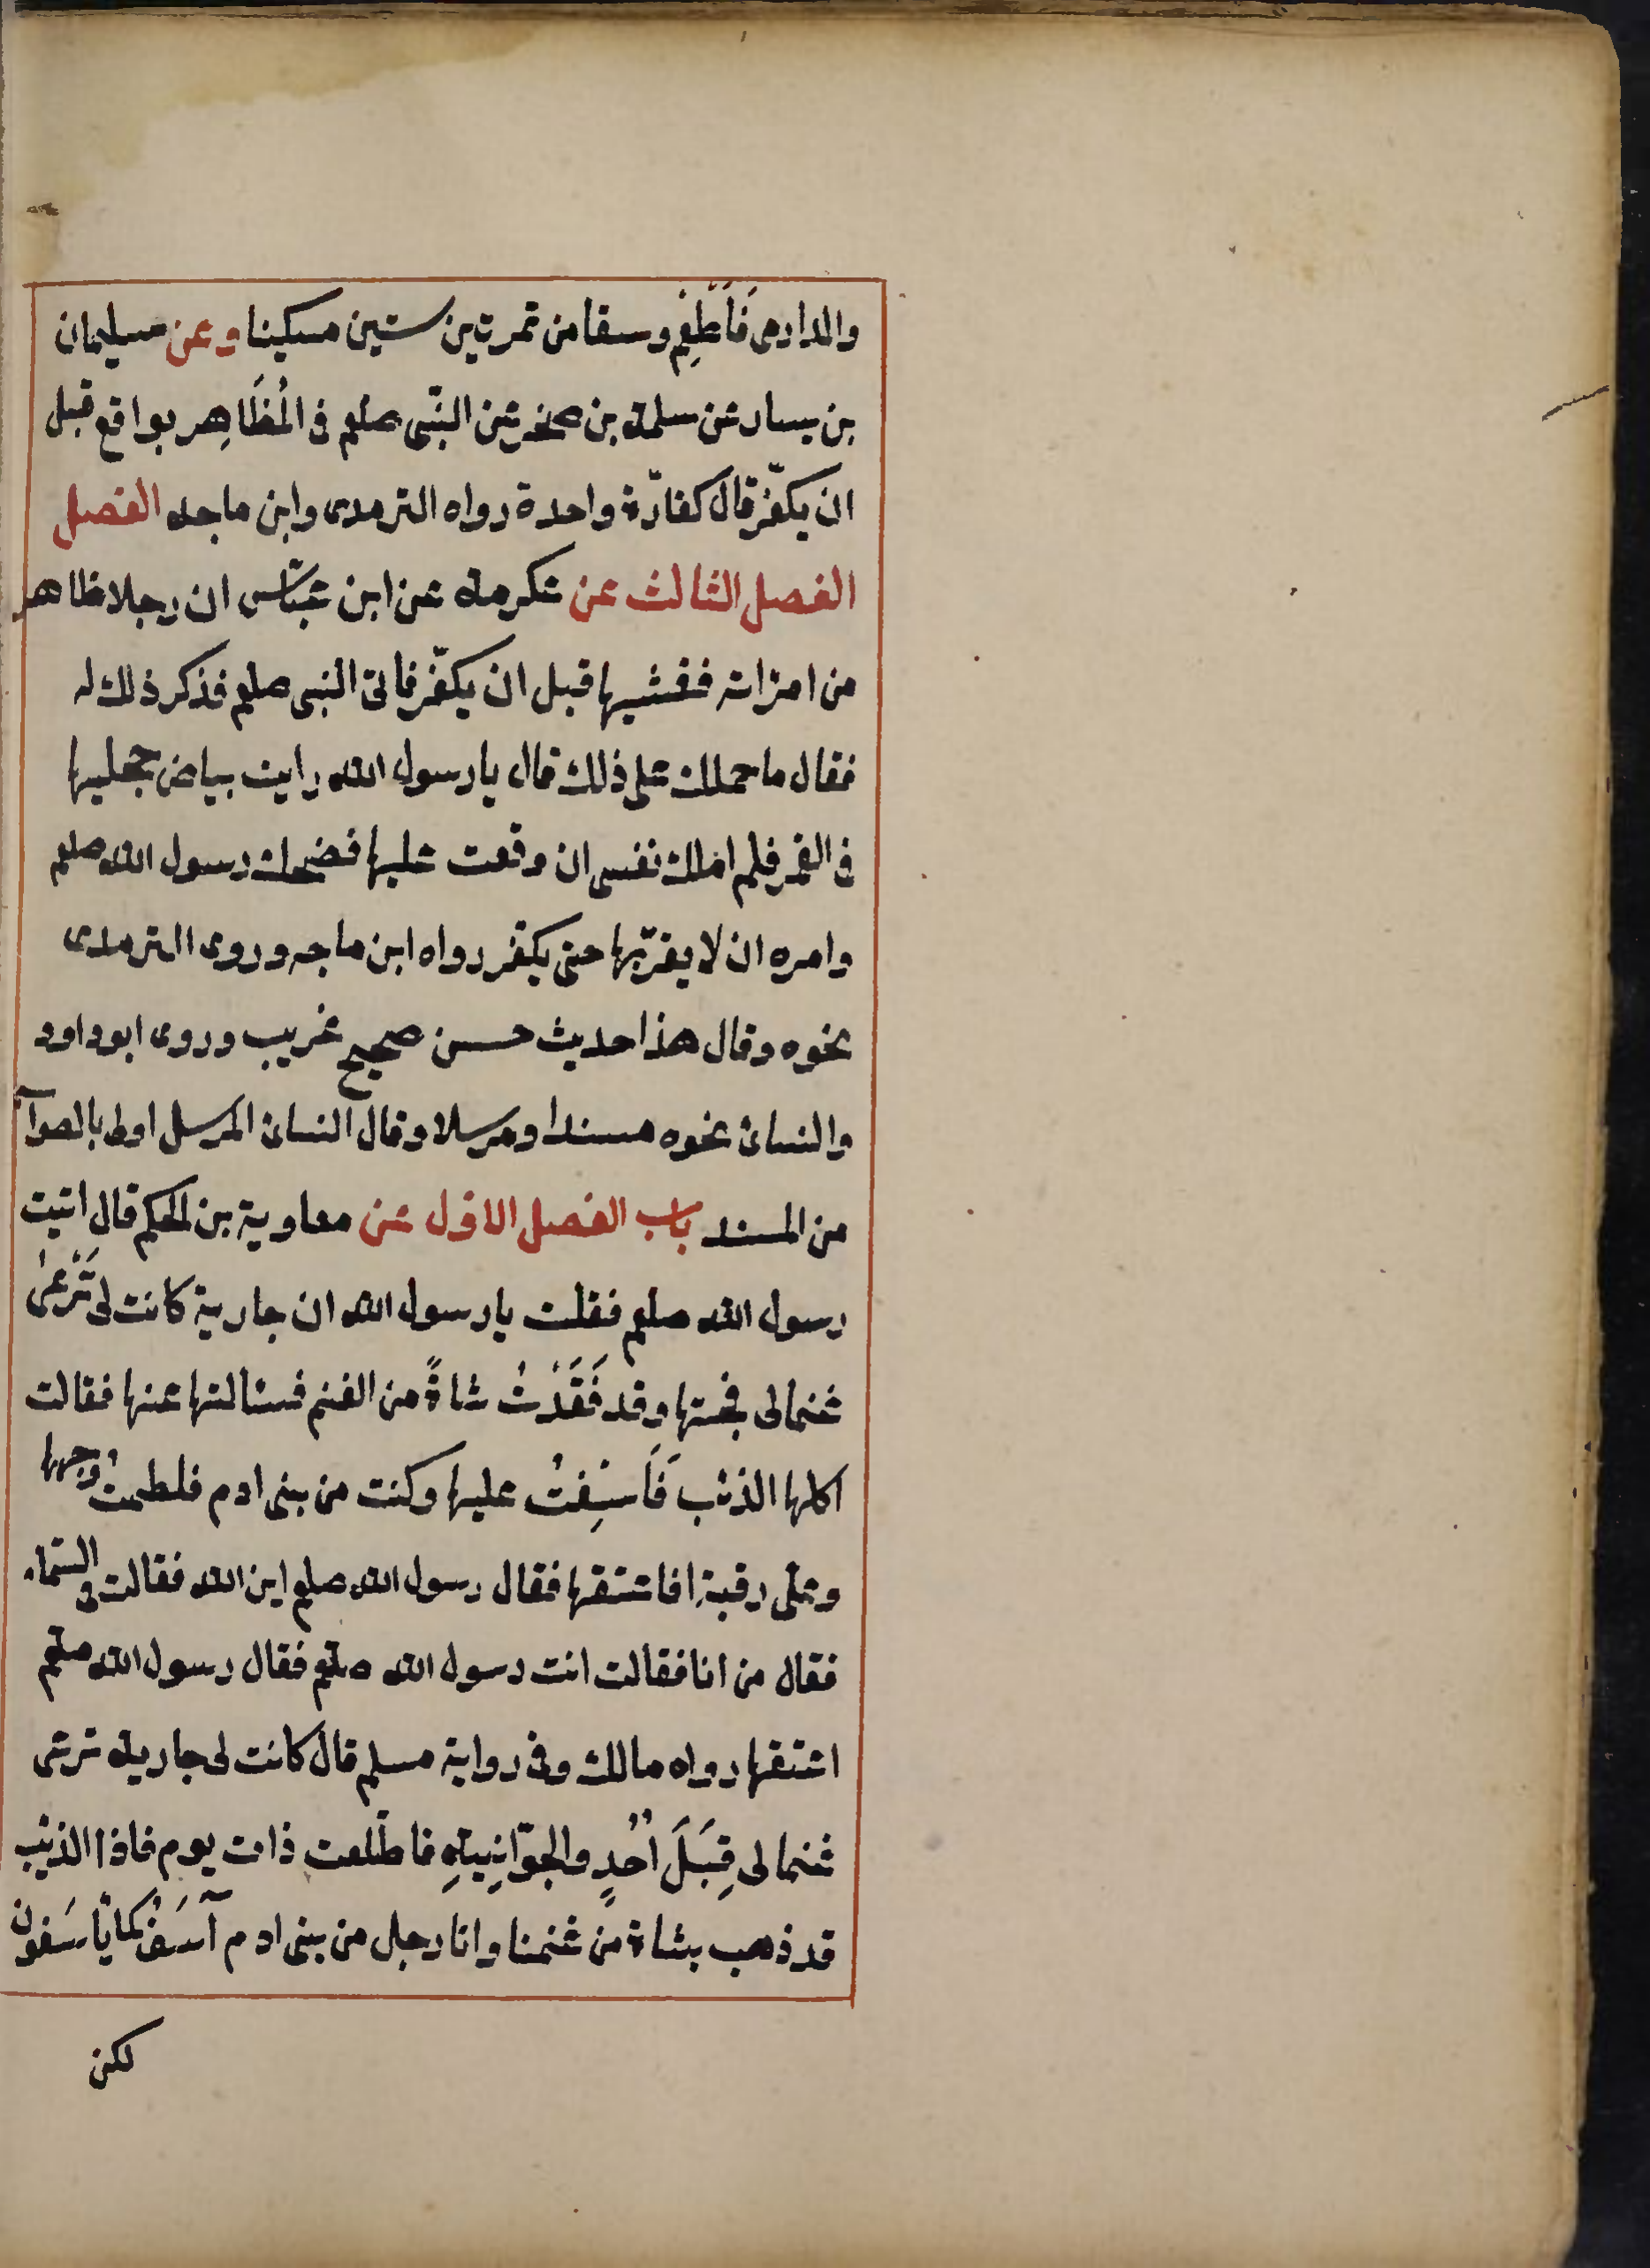 والدارمى فَاَطْعِم وسقا من تمر بين ستين مسكينا وعن سليمان
بن يسار عن سلمة بن صخر عن النبّى صلعم فى المُظَاهِر يواقع قبل
ان يكفّر قال كفارّة واحدة رواه الترمدى وابن ماجه الفصل
الفصل الثالث عن عكرمة عن ابن عبّاس ان رجلا ظاهر
من امراته فغشيها قبل ان يكفّر فاتى النبى صلعم فذكر ذلك له
فقال ما حملك على ذلك قال يا رسول الله رايت بياض حجليها
فى القمر فلم املك نفسى ان وقعت عليها فضحك رسول الله صلعم
وامره ان لا يقربّها حتى يكفر رواه ابن ماجه وروى الترمدى
نحوه وقال هذا حديث حسن صحيح غريب وروى ابو داود
والنسائ نحوه مسندا ومرسلا وقال النسائ المرسل اولى بالصوآ
من المسند باب الفصل الاول عن معاوية بن الحكم قال اتيت
رسول الله صلعم فقلت يا رسول الله ان جارية كانت لى تَرْعٰى
غنما لى فجئتها وقد فَقَدْتُ شاةً من الغنم فسئالتها عنها فقالت
اكلها الذئب فَاَسِفْتُ عليها وكنت من بنى ادم فلطمتُ وجهها
وعلى رقبةِ افاعتقها فقال رسول الله صلعم اين الله فقالت فى السّماء
فقال من انا فقالت انت رسول الله صلعم فقال رسول الله صلعم
اعتقها رواه مالك وفى رواية مسلم قال كانت لى جارية ترعى
غنما لى قِبَلَ اُحُدٍ والجوّانِيةِ فاطّلعت ذات يوم فاذا الذئب
قد ذهب بشاة من غنمنا وانا رجل من بنى ادم آسَفُ كما يأسَفون
لكن